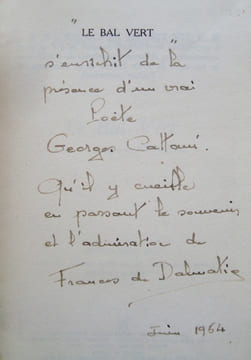 "LE BAL VERT"
s'enrichit de "la
présence d'un vrai
Poète
Georges Cattaui.
Qu'il y cueille
en passant le souvenir
et l'admiration de
Frances de Dalmatie
Juin 1964